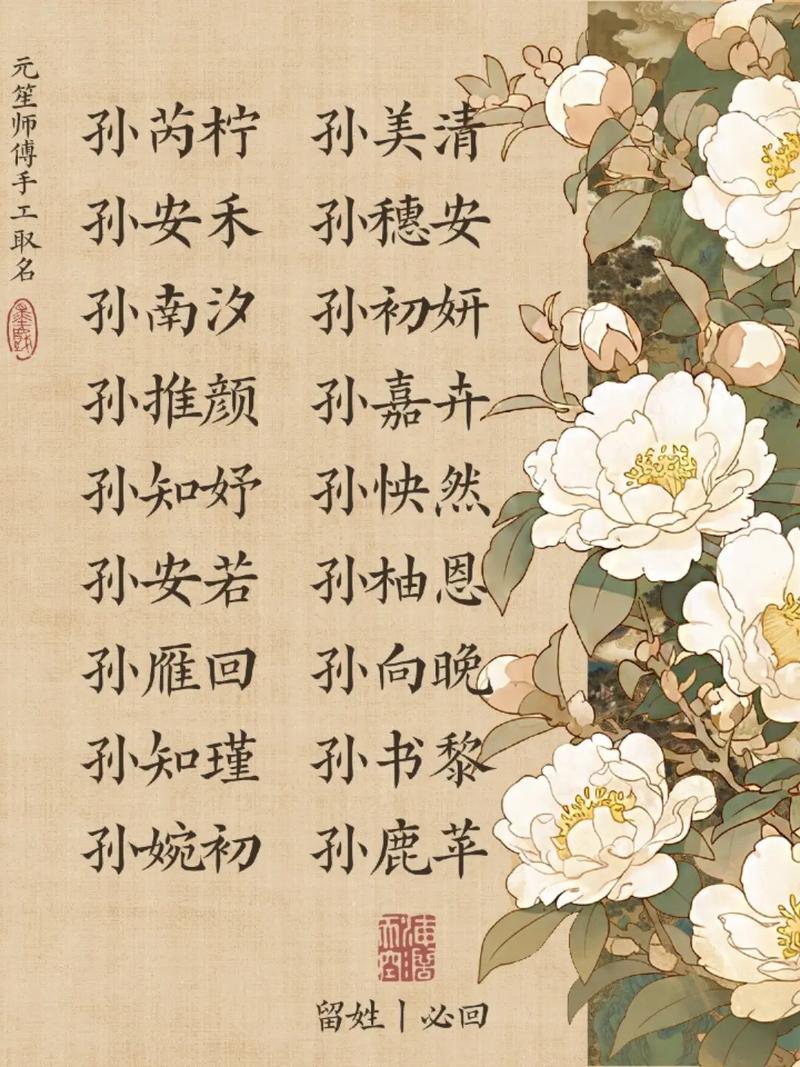 元笙师傅手工取名
孙芮柠 孙美清
孙安禾 孙穗安
孙南汐 孙初妍
孙推颜 孙嘉卉
孙知妤 孙怏然
孙安若 孙柚恩
孙雁回 孙向晚
孙知瑾 孙书黎
孙婉初 孙鹿苹
留姓丨必回